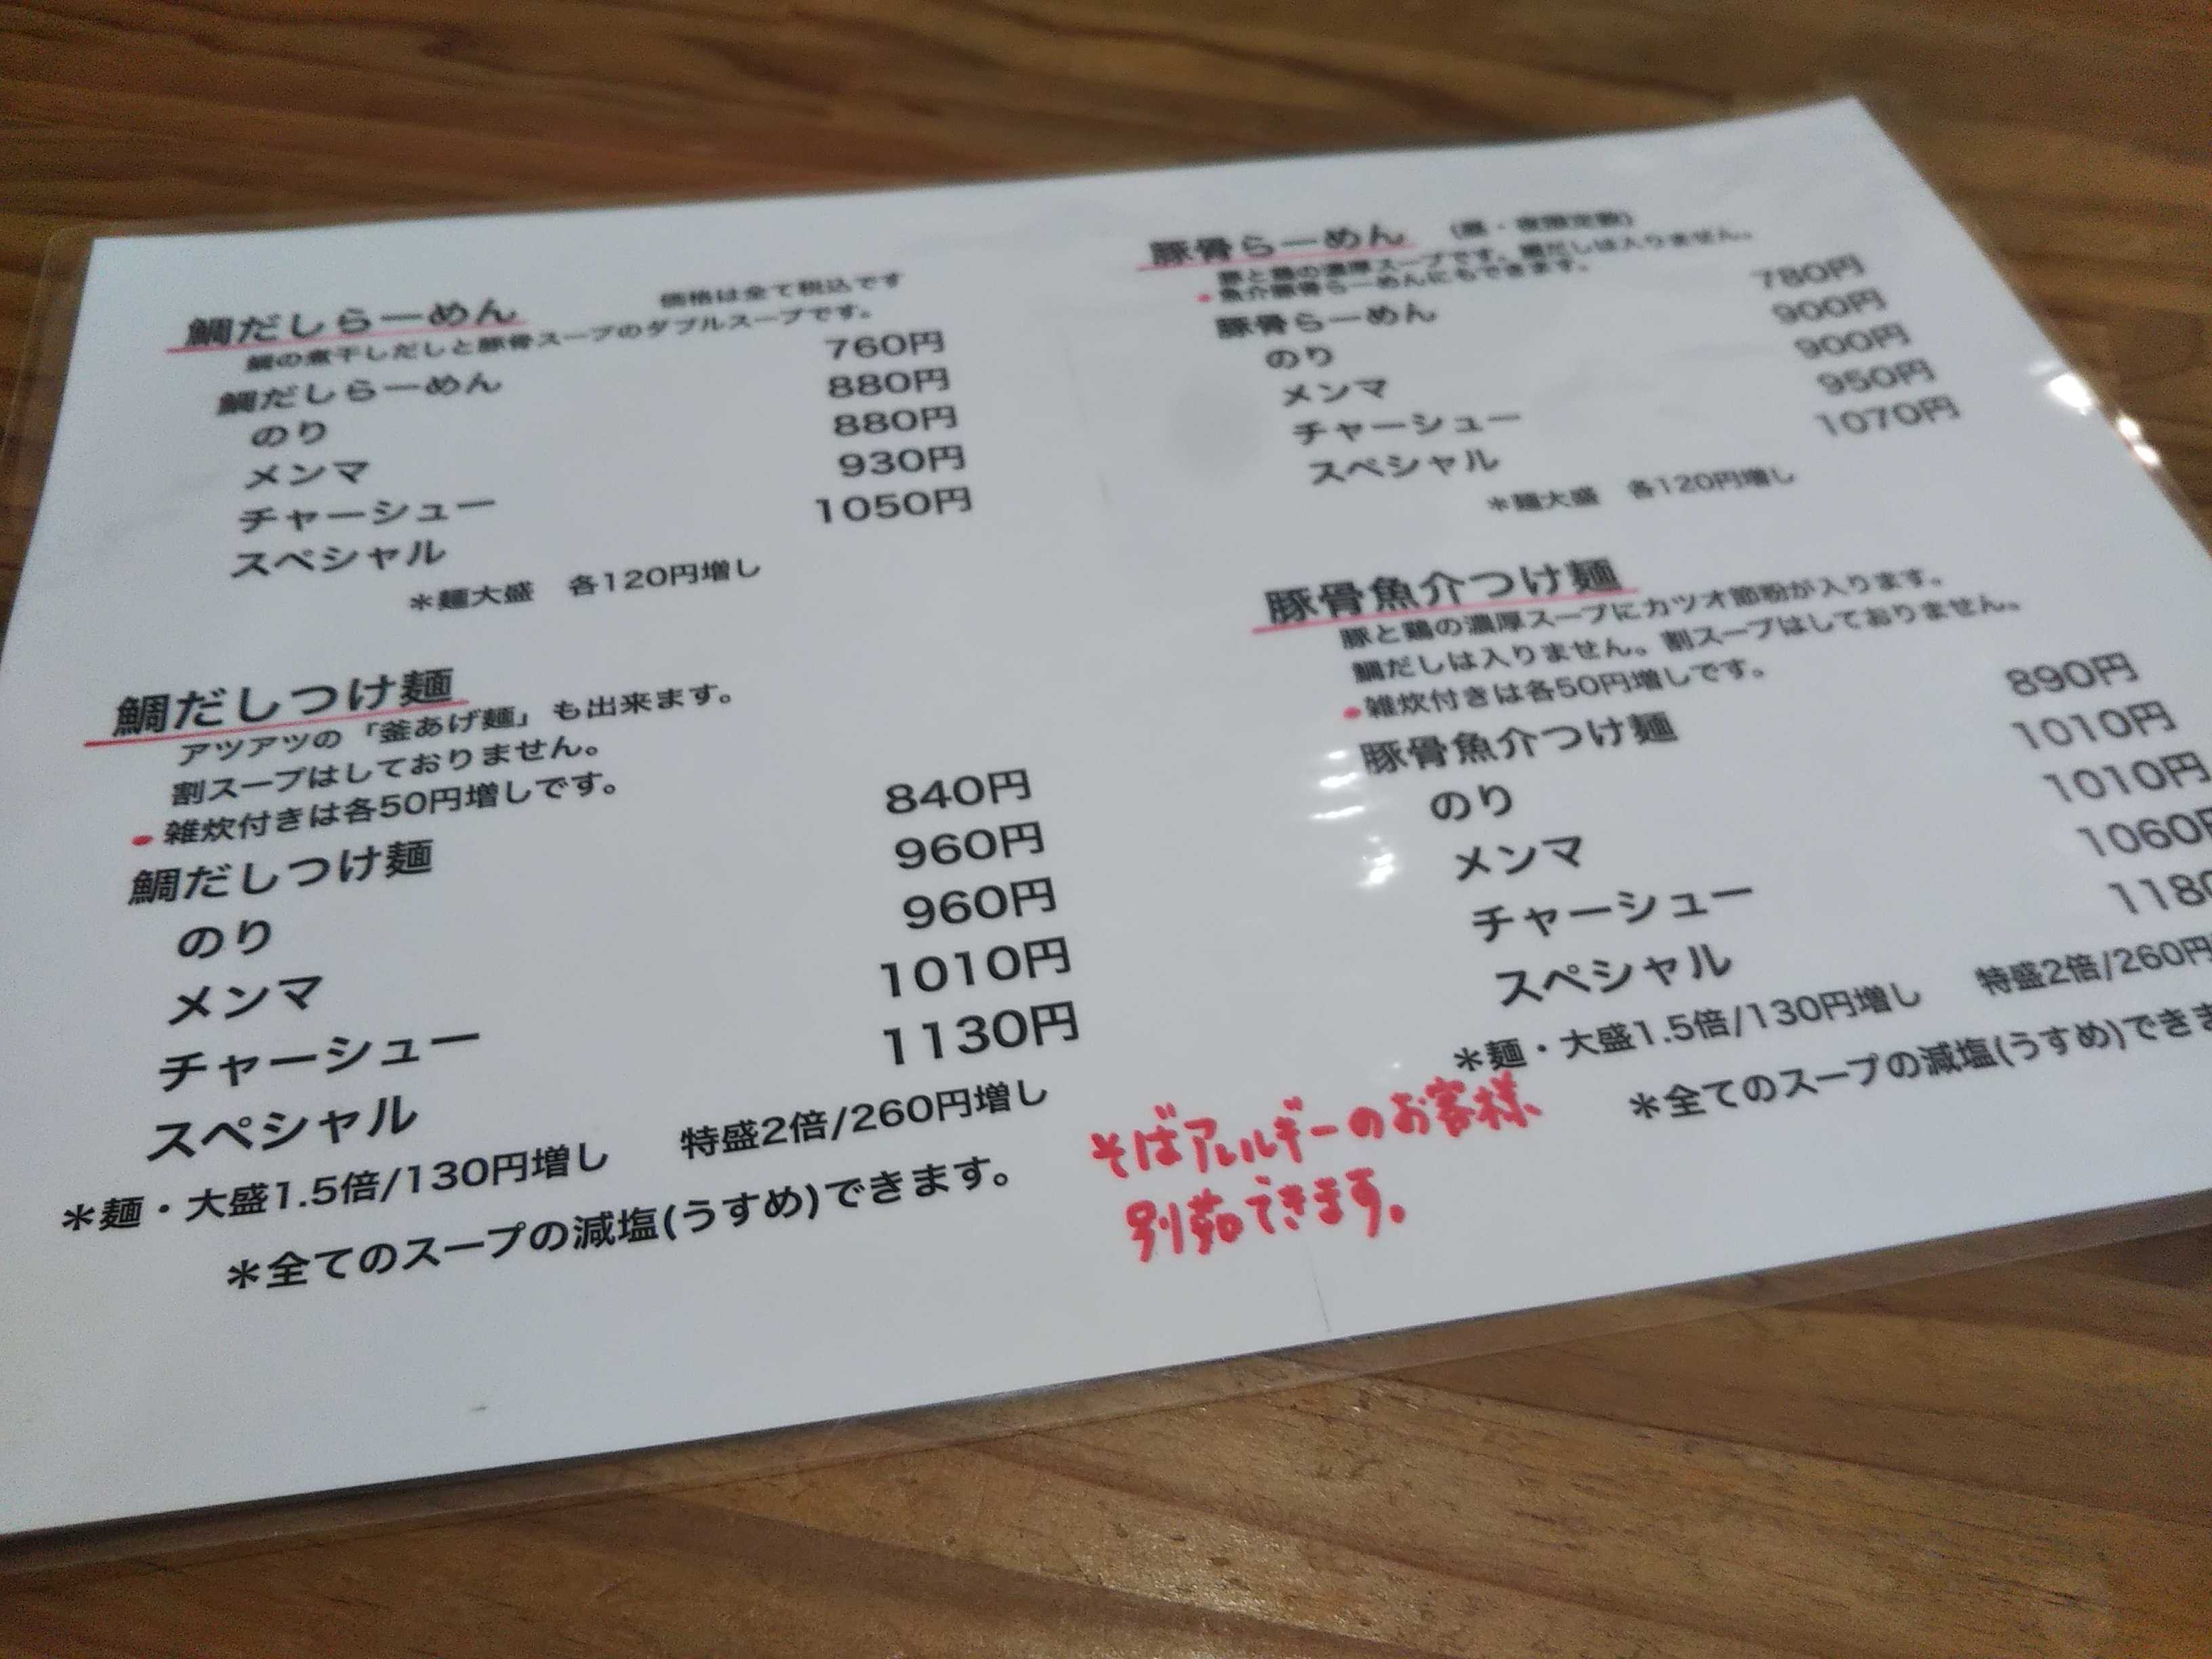 鯛だしらーめん
価格は全て税込です
鯛の煮干しだしと豚骨スープのダブルスープです。
鯛だしらーめん 760円
のり 880円
メンマ 880円
チャーシュー 930円
スペシャル 1050円
＊麺大盛 各120円増し
鯛だしつけ麺
アツアツの「釜あげ麺」も出来ます。
割スープはしておりません。
・雑炊付きは各50円増しです。
鯛だしつけ麺 840円
のり 960円
メンマ 960円
チャーシュー 1010円
スペシャル 1130円
＊麺・大盛1.5倍/130円増し 特盛2倍/260円増し
＊全てのスープの減塩(うすめ)できます。
豚骨らーめん (昼・夜限定数)
豚と鶏の濃厚スープです。鯛だしは入りません。
・魚介豚骨らーめんにもできます。
豚骨らーめん 780円
のり 900円
メンマ 900円
チャーシュー 950円
スペシャル 1070円
＊麺大盛 各120円増し
豚骨魚介つけ麺
豚と鶏の濃厚スープにカツオ節粉が入ります。
鯛だしは入りません。割スープはしておりません。
・雑炊付きは各50円増しです。
豚骨魚介つけ麺 890円
のり 1010円
メンマ 1010円
チャーシュー 1060円
スペシャル 1180
＊麺・大盛1.5倍/130円増し 特盛2倍/260円
＊全てのスープの減塩(うすめ)できま
そばアレルギーのお客様
別茹できます。